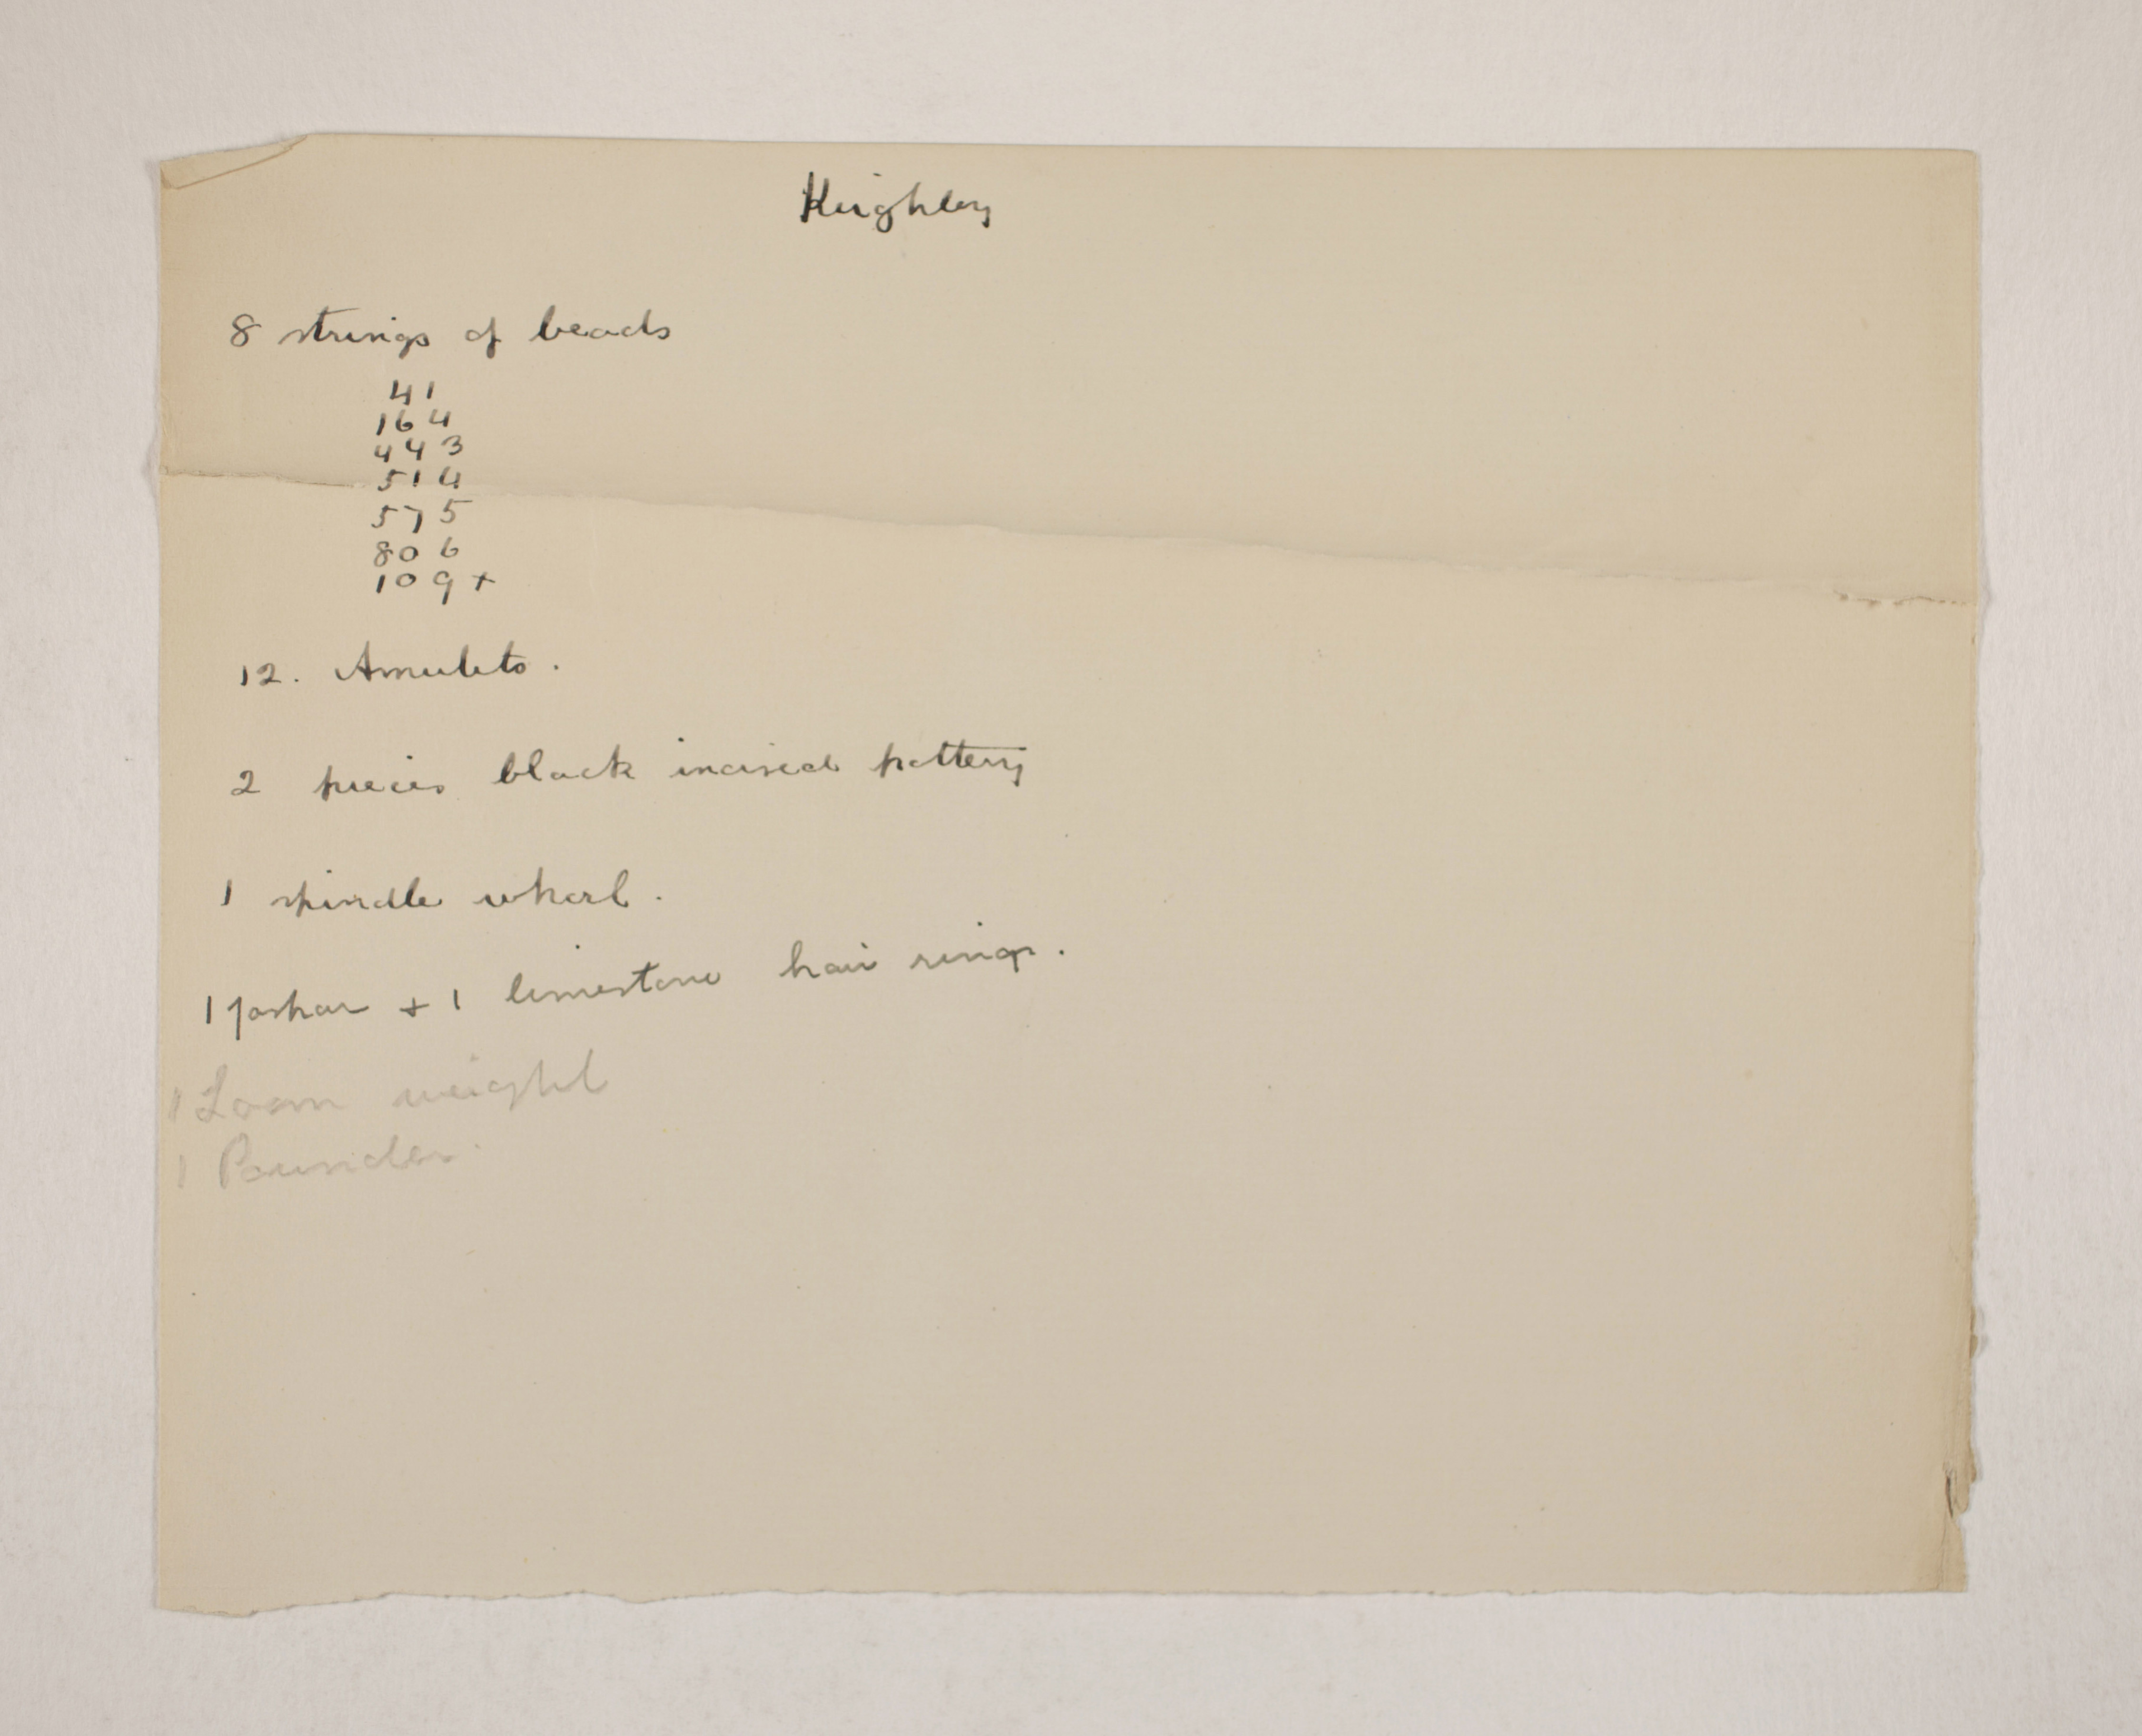 Keighley
8 strings of beads
41
164
443
514
575
806
109+
12. Amulets.
2 pieces black incised pottery
1 spindle whorl.
1 jasper + 1 limestone hair rings.
1 Loom weight
1 Pounder.